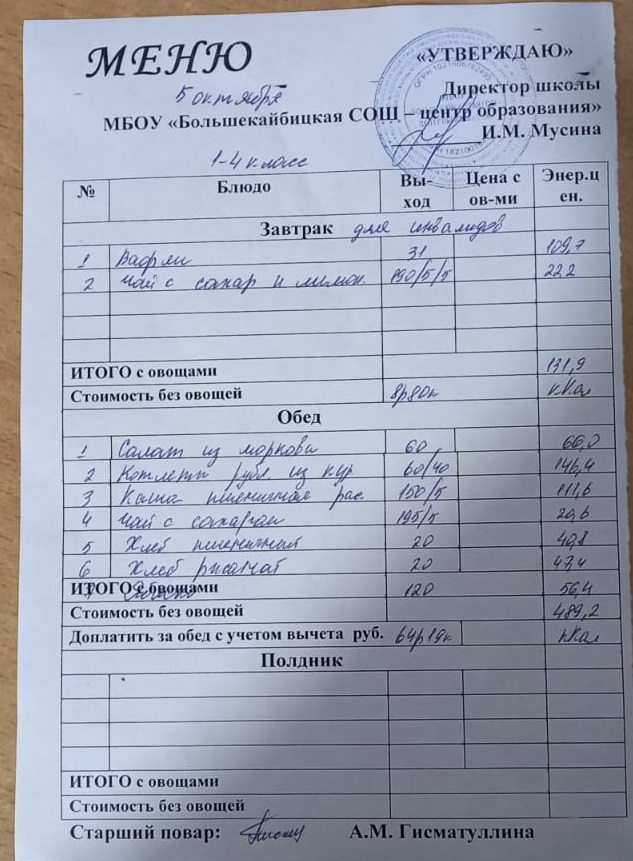 МЕНЮ
«УТВЕРЖДАЮ»
5 октября
Директор школы
МБОУ «Большекайбицкая СОШ – центр образования»
И.М. Мусина
1-4 класс
№ Блюдо Вы-ход Цена с ов-ми Энер.цен.
Завтрак для инвалидов
1 Вафли 31 109,7
2 Чай с сахар и лимон. 190/5/5 22,2
ИТОГО с овощами 131,9
Стоимость без овощей 8р80к кКал
Обед
1 Салат из моркови 60 66,0
2 Котлеты рубл. из кур 60/40 146,4
3 Каша пшеничная рас. 150/5 111,6
4 Чай с сахаром 195/5
5 Хлеб пшеничный 20 40,8
6 Хлеб 20 43,4
ИТОГО с овощами 120 56,4
Стоимость без овощей 489,2
Доплатить за обед с учетом вычета руб. 64р19к кКал
Полдник
ИТОГО с овощами
Стоимость без овощей
Старший повар: А.М. Гисматуллина